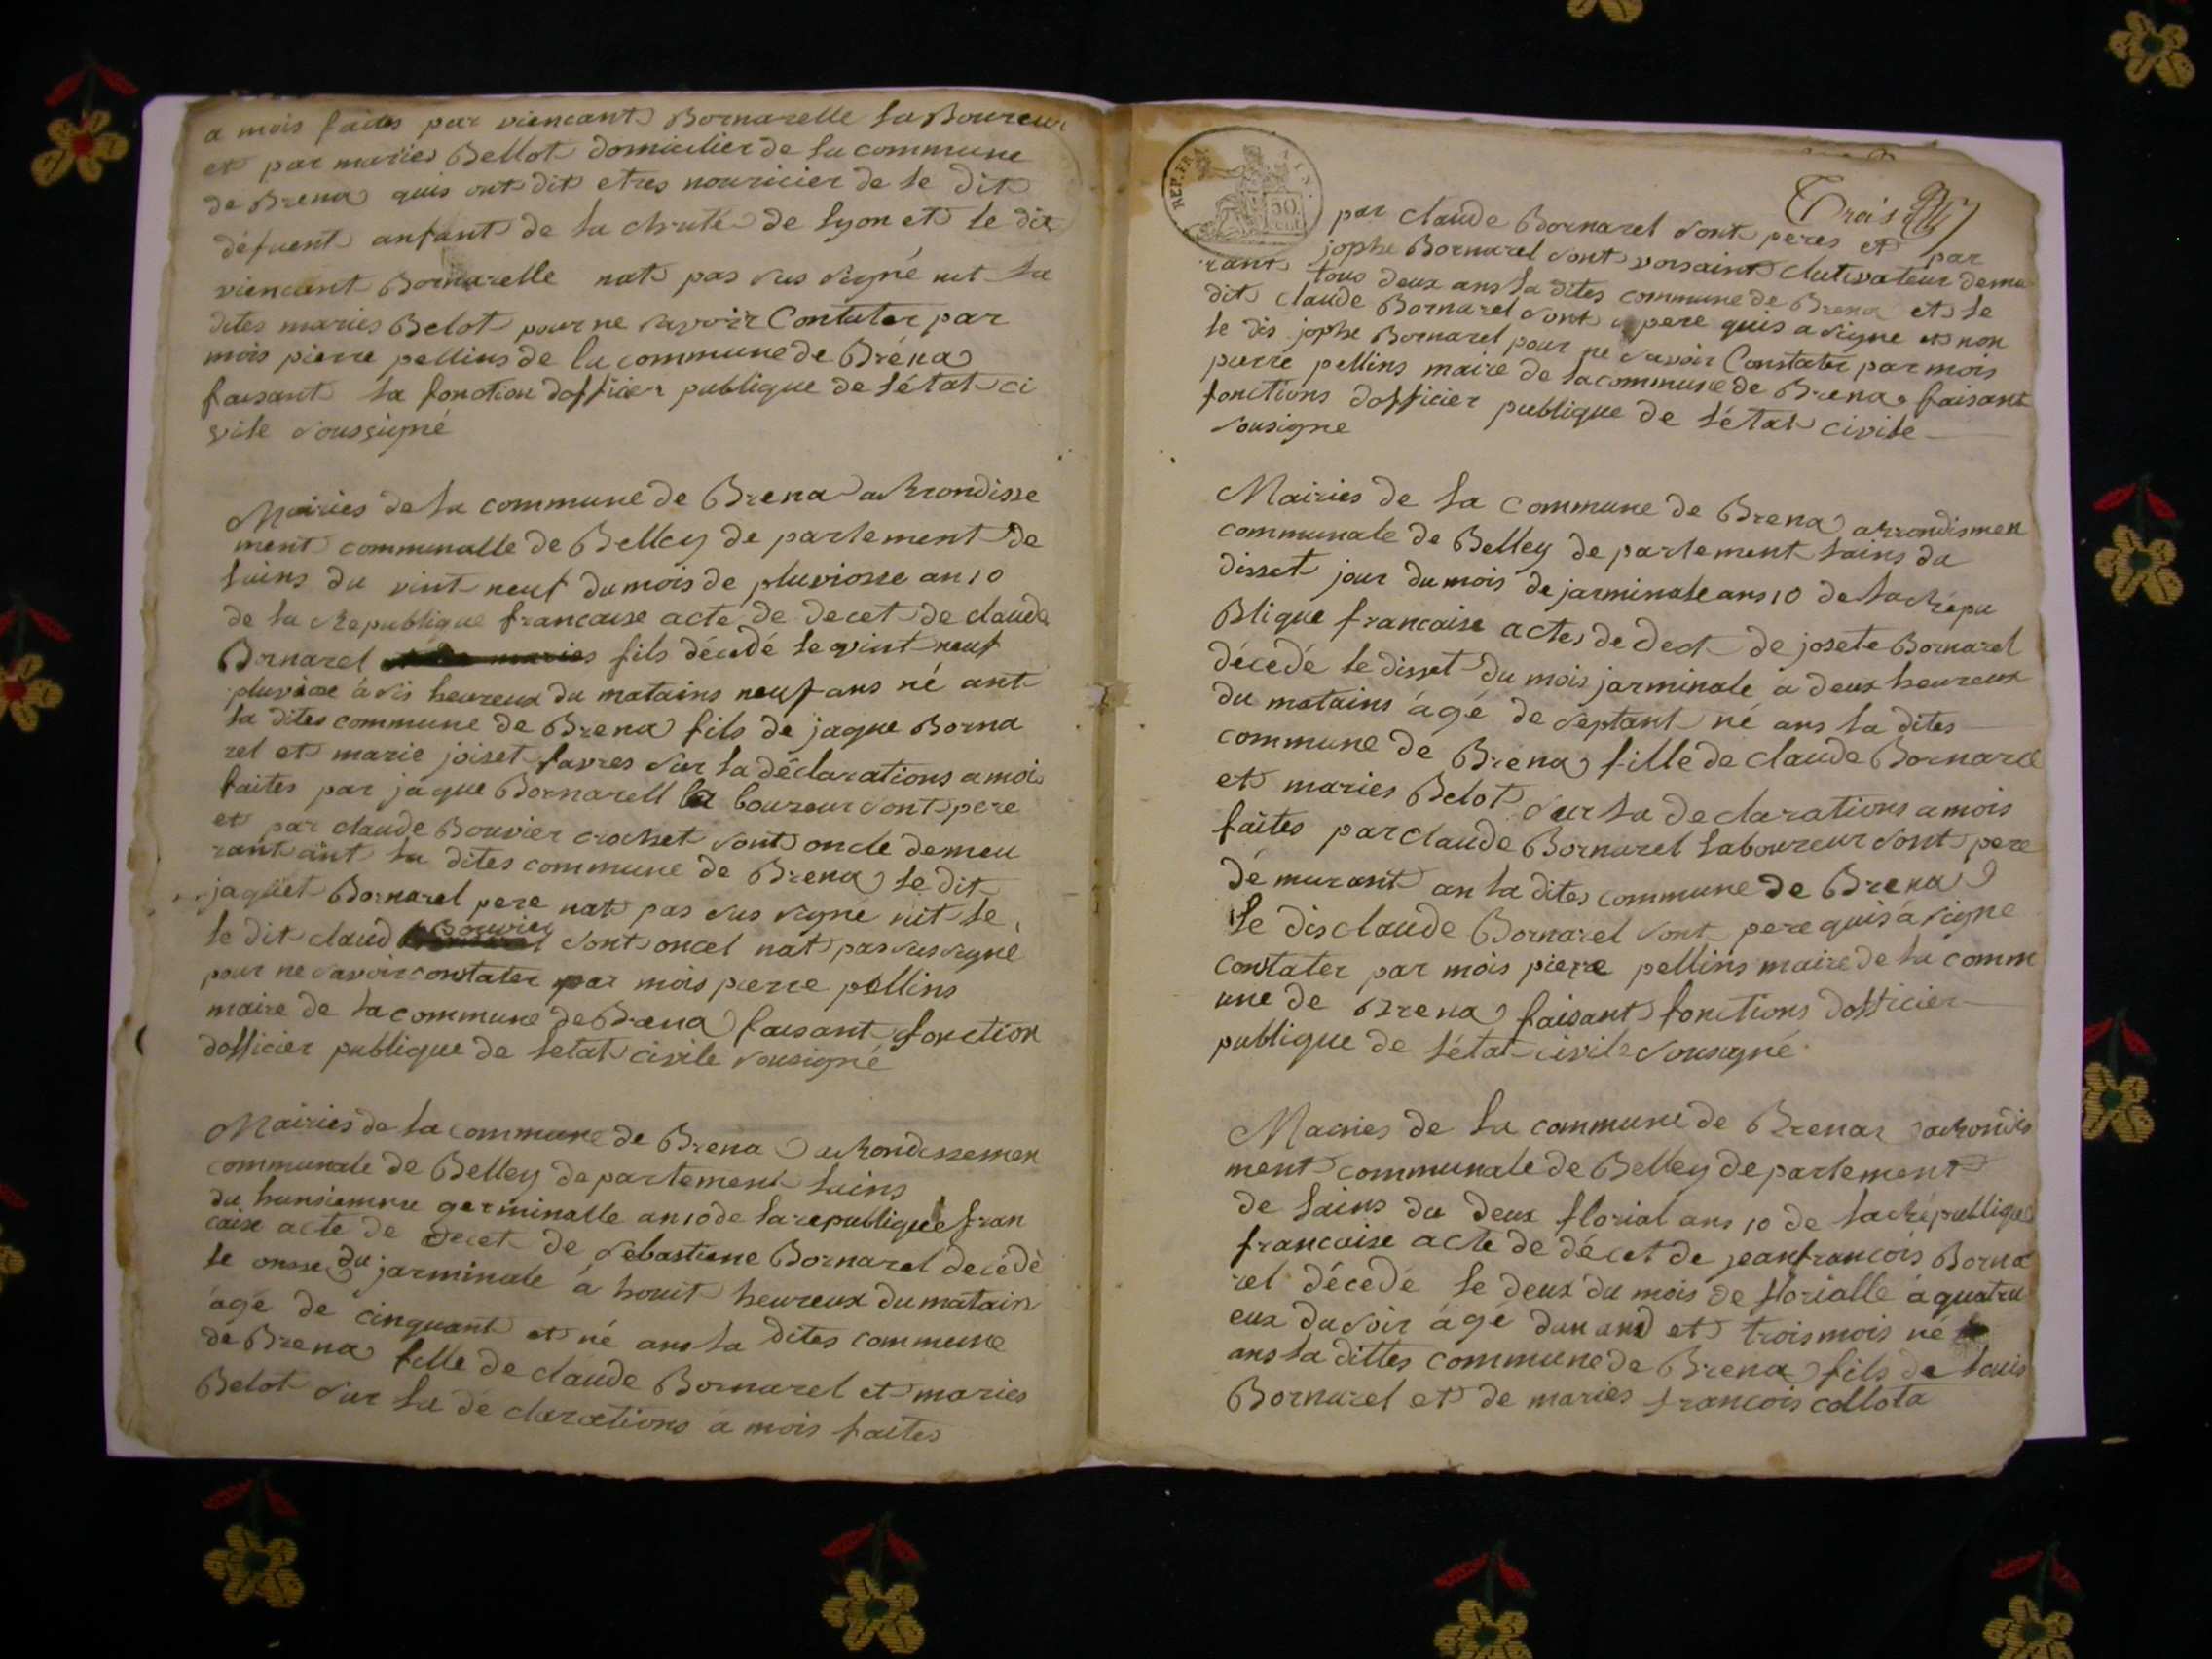 a mois faites par viencant Bornarelle laboureur
et par maries Bellot domicilier de la commune
de Brena quis ont dit etres nouricier de le dit
défuent anfant de la chrute de Lyon et le dit
viencent Bornarelle nat pas sus signé nit la
dites maries Belot pour ne savoir Contater par
mois pierre pellins de la commune de Bréna
faisant la fonction dofficier publique de létat ci
vile soussigné
Mairies de la commune de Brena arrondisse
ment communalle de Belley de partement de
lains du vint neuf du mois de pluviosse an 10
de la republique francaise acte de decet de claude
Bornarel maries fils décédé le vint neuf
pluviose à sis heureux du matains neuf ans né ant
la dites commune de Brena fils de jaque Borna
rel et marie joiset favres sur la déclarations a mois
faites par jaque Bornarell la boureur sont pere
et par claude Bouvier crochet sont oncle demeu
rant ant la dites commune de Brena le dit
jaquet Bornarel pere nat pas sus signé nit le
Bouvier
le dit claud sont oncel nat pas sus signe
pour ne savoir constater par mois pierre pellins
maire de la commune de Brena faisant fonction
dofficier publique de letat civile sousigné
Mairies de la commune de Brena arrondissemen
communale de Belley departement lains
du hunsiemme germinalle an 10 de la republique fran
caise acte de decet de sebastiene Bornarel decédè
le onsse du jarminale à houit heureux du matain
àgé de cinquant et né ans la dites commune
de Brena fille de claude Bornarel et maries
Belot sur la de clarations a mois faites
REP. FRA
50
Trois
par claude Bornarel sont peres et par
jophe Bornarel sont voisaint clutivateur demu
rant tous deux ans la dites commune de Brena et le
dit claude Bornarel sont pere quis a signe et non
le dis jophe Bornarel pour ne savoir Constater par mois
pierre pellins maire de la commune de Brena faisant
fonctions dofficier publique de létat civile
sousigne
Mairies de la commune de Brena arrondismen
communale de Belley de partement lains du
disset jour du mois de jarminale ans 10 de la répu
blique francaise actes de dect de josete Bornarel
décedé le disset du mois jarminale a deux heureux
du matains àgé de septant né ans la dites
commune de Brena fille de claude Bornarel
et maries Belot sur la declarations a mois
faites par claude Bornarel laboureur sont pere
dé murant an la dites commune de Brena
le dis claude Bornarel sont pere quis à signe
contater par mois piere pellins maire de la comm
une de Brena faisant fonctions dofficier
publique de létat civile sousigné
Mairies de la commune de Brenar arrondis
ment communale de Belley departement
de lains du deux florial ans 10 de la république
francaise acte de décet de jeanfrancois Borna
rel décedé le deux du mois de florialle à quatru
eux du soir àgé dun and et trois mois né
ans la dittes commune de Brena fils de louis
Bornarel et de maries francois collota